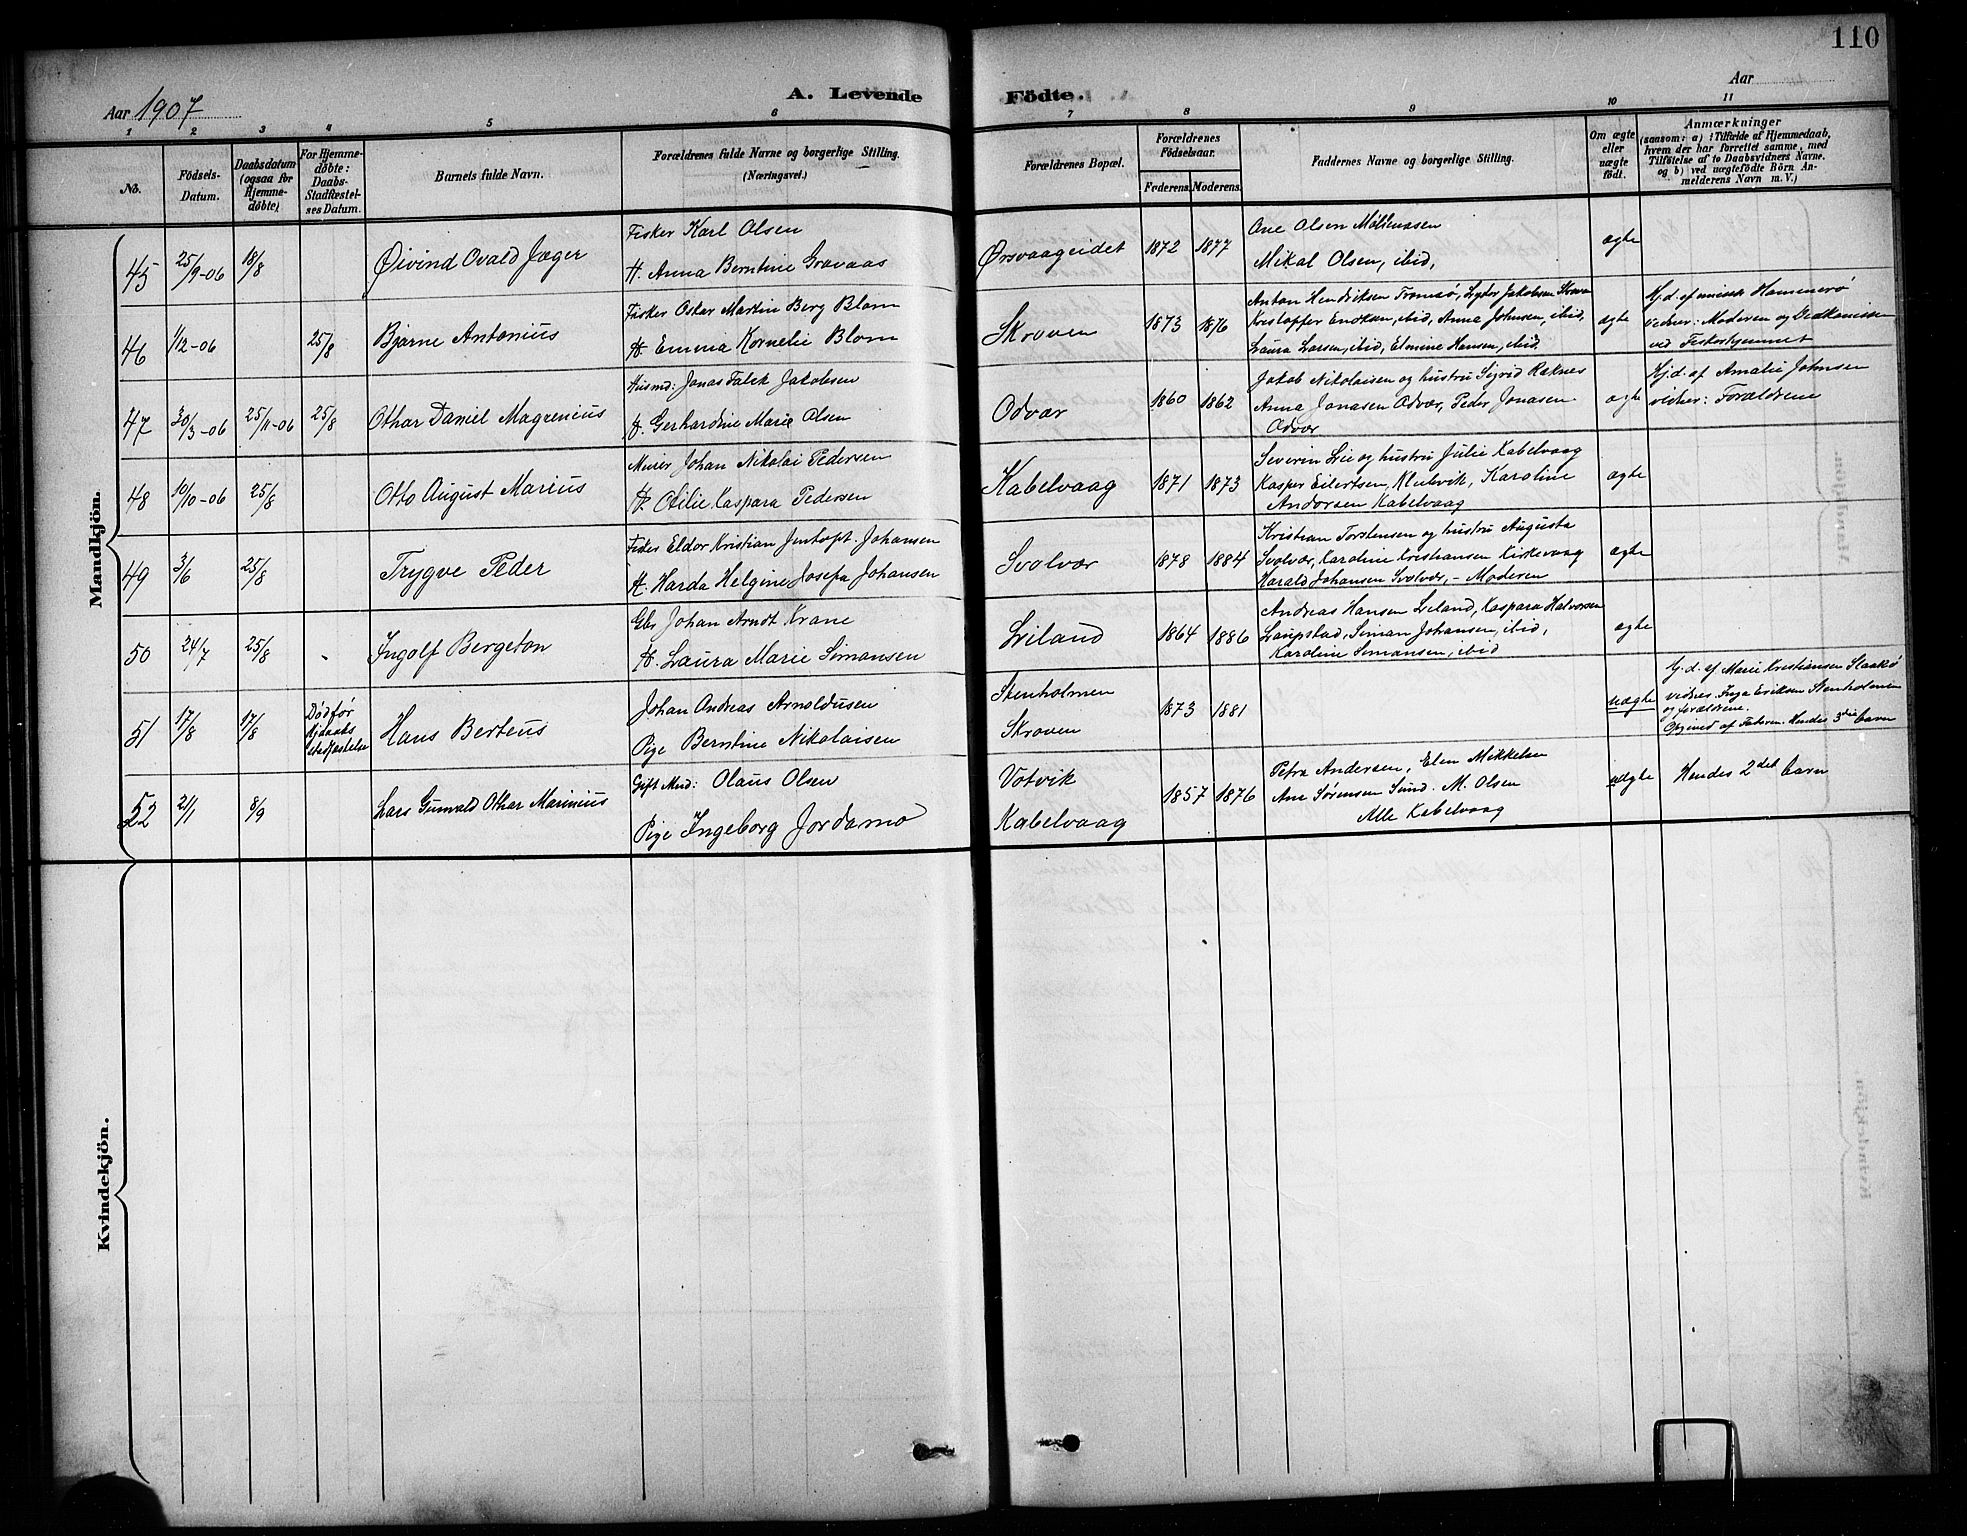 110
Aar 1907
A. Levende Födte.
Aar
1 2 3 4 5 6 7 8 9 10 11
No.
Födsels-Datum.
Daabsdatum (ogsaa for Hjemmedøbte).
For Hjemmedøbte: Daabs-Stadfæstelses Datum.
Barnets fulde Navn.
Forældrenes fulde Navne og borgerlige Stilling.
(Næringsvei.)
Forældrenes Bopæl.
Forældrenes Födselsaar.
Faderens. Moderens.
Faddernes Navne og borgerlige Stilling.
Om ægte eller uægte födt.
Anmærkninger
(saasom: a) i Tilfælde af Hjemmedaab, hvem der har forrettet samme, med Tilföielse af to Daabsvidners Navne, og b) ved uægtefödte Börn Anmelderens Navn m. V.)
Mandkjön.
45 25/9-06 18/8 Øivind Ovald Jæger
Fisker Karl Olsen
H. Anna Berntine Gravaas
Ørsvaageidet 1872 1877
Ane Olsen
Mikal Olsen, ibid,
ægte
46 1/12-06 25/8 Bjarne Antonius
Fisker Oskar Martin Berg Blom
H. Emma Kornelie Blom
Skroven 1873 1876
Anton Hendriksen Tromsø, Lydor Jakobsen Skroven
Kristoffer Enoksen, ibid, Anna Johnsen, ibid,
Laura Larsen, ibid, Elmine Hansen, ibid.
ægte
Hj.d. af Hammerø
vidner: Moderen og
ved
47 30/3-06 25/11-06 25/8 Othar Daniel Magrenius
Husmd: Jonas Falck Jakobsen
H. Gerhardine Marie Olsen
Odvær 1860 1862
Jakob Nikolaisen og hustru Sigrid Raknes
Anna Jonasen Odvær, Peder Jonasen
Odvær
ægte
Hj.d. af Amalie Johnsen
vidner: Forældrene
48 10/10-06 25/8 Otto August Marius
Murer Johan Nikolai Pedersen
H. Otilie Kaspara Pedersen
Kabelvaag 1871 1873
Severin Lie og hustru Julie Kabelvaag
Kasper Eilertsen, Klubvik, Karoline
Andorsen Kabelvaag
ægte
49 3/6 25/8 Trygve Peder
Fisker Eldor Kristian Jentoft Johansen
H. Harda Helgine Josefa Johansen
Svolvær 1878 1884
Kristian Torstensen og hustru Augusta
Svolvær, Karoline Kristiansen Kirkevaag
Harald Johansen Svolvær, - Moderen
ægte
50 24/7 25/8 Ingolf Bergeton
Gbr Johan Arndt Krane
H. Laura Marie Simonsen
Liland 1864 1886
Andreas Hansen Liland, Kaspara Halvorsen
Laupstad, Simon Johansen, ibid,
Karoline Simonsen, ibid
ægte
51 17/8 17/8 Død før Hjdaabs stadfæstelse Hans Berteus
Johan Andreas Arnoldusen
Pige Berntine Nikolaisen
Stenholmen
Skroven 1873 1881
uægte
Hj.d. af Marie Kristiansen
vidner. Inga Eriksen Stenholmen
og forældrene.
Opgived af Faderen. Hendes 3die barn
52 2/1 8/9 Lars Gunvald Othar Marinius
Gift Mand: Olaus Olsen
Pige Ingeborg Jordamo
Votvik
Kabelvaag 1857 1876
Petra Andersen, Elen Mikkelsen
Ane Sørensen Sund. M. Olsen
Alle Kabelvaag
uægte
Hendes 2det barn
Kvindekjön.